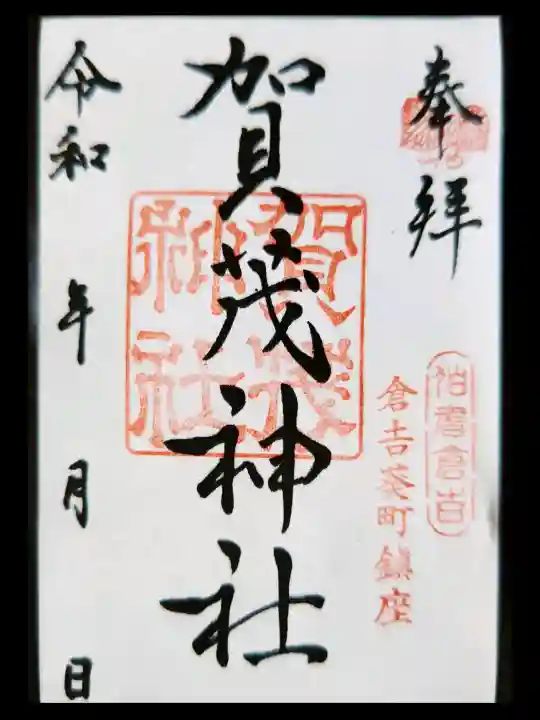 奉拝
伯耆倉吉
倉吉葵町鎮座
賀茂神社
賀茂神社
令和 年 月 日